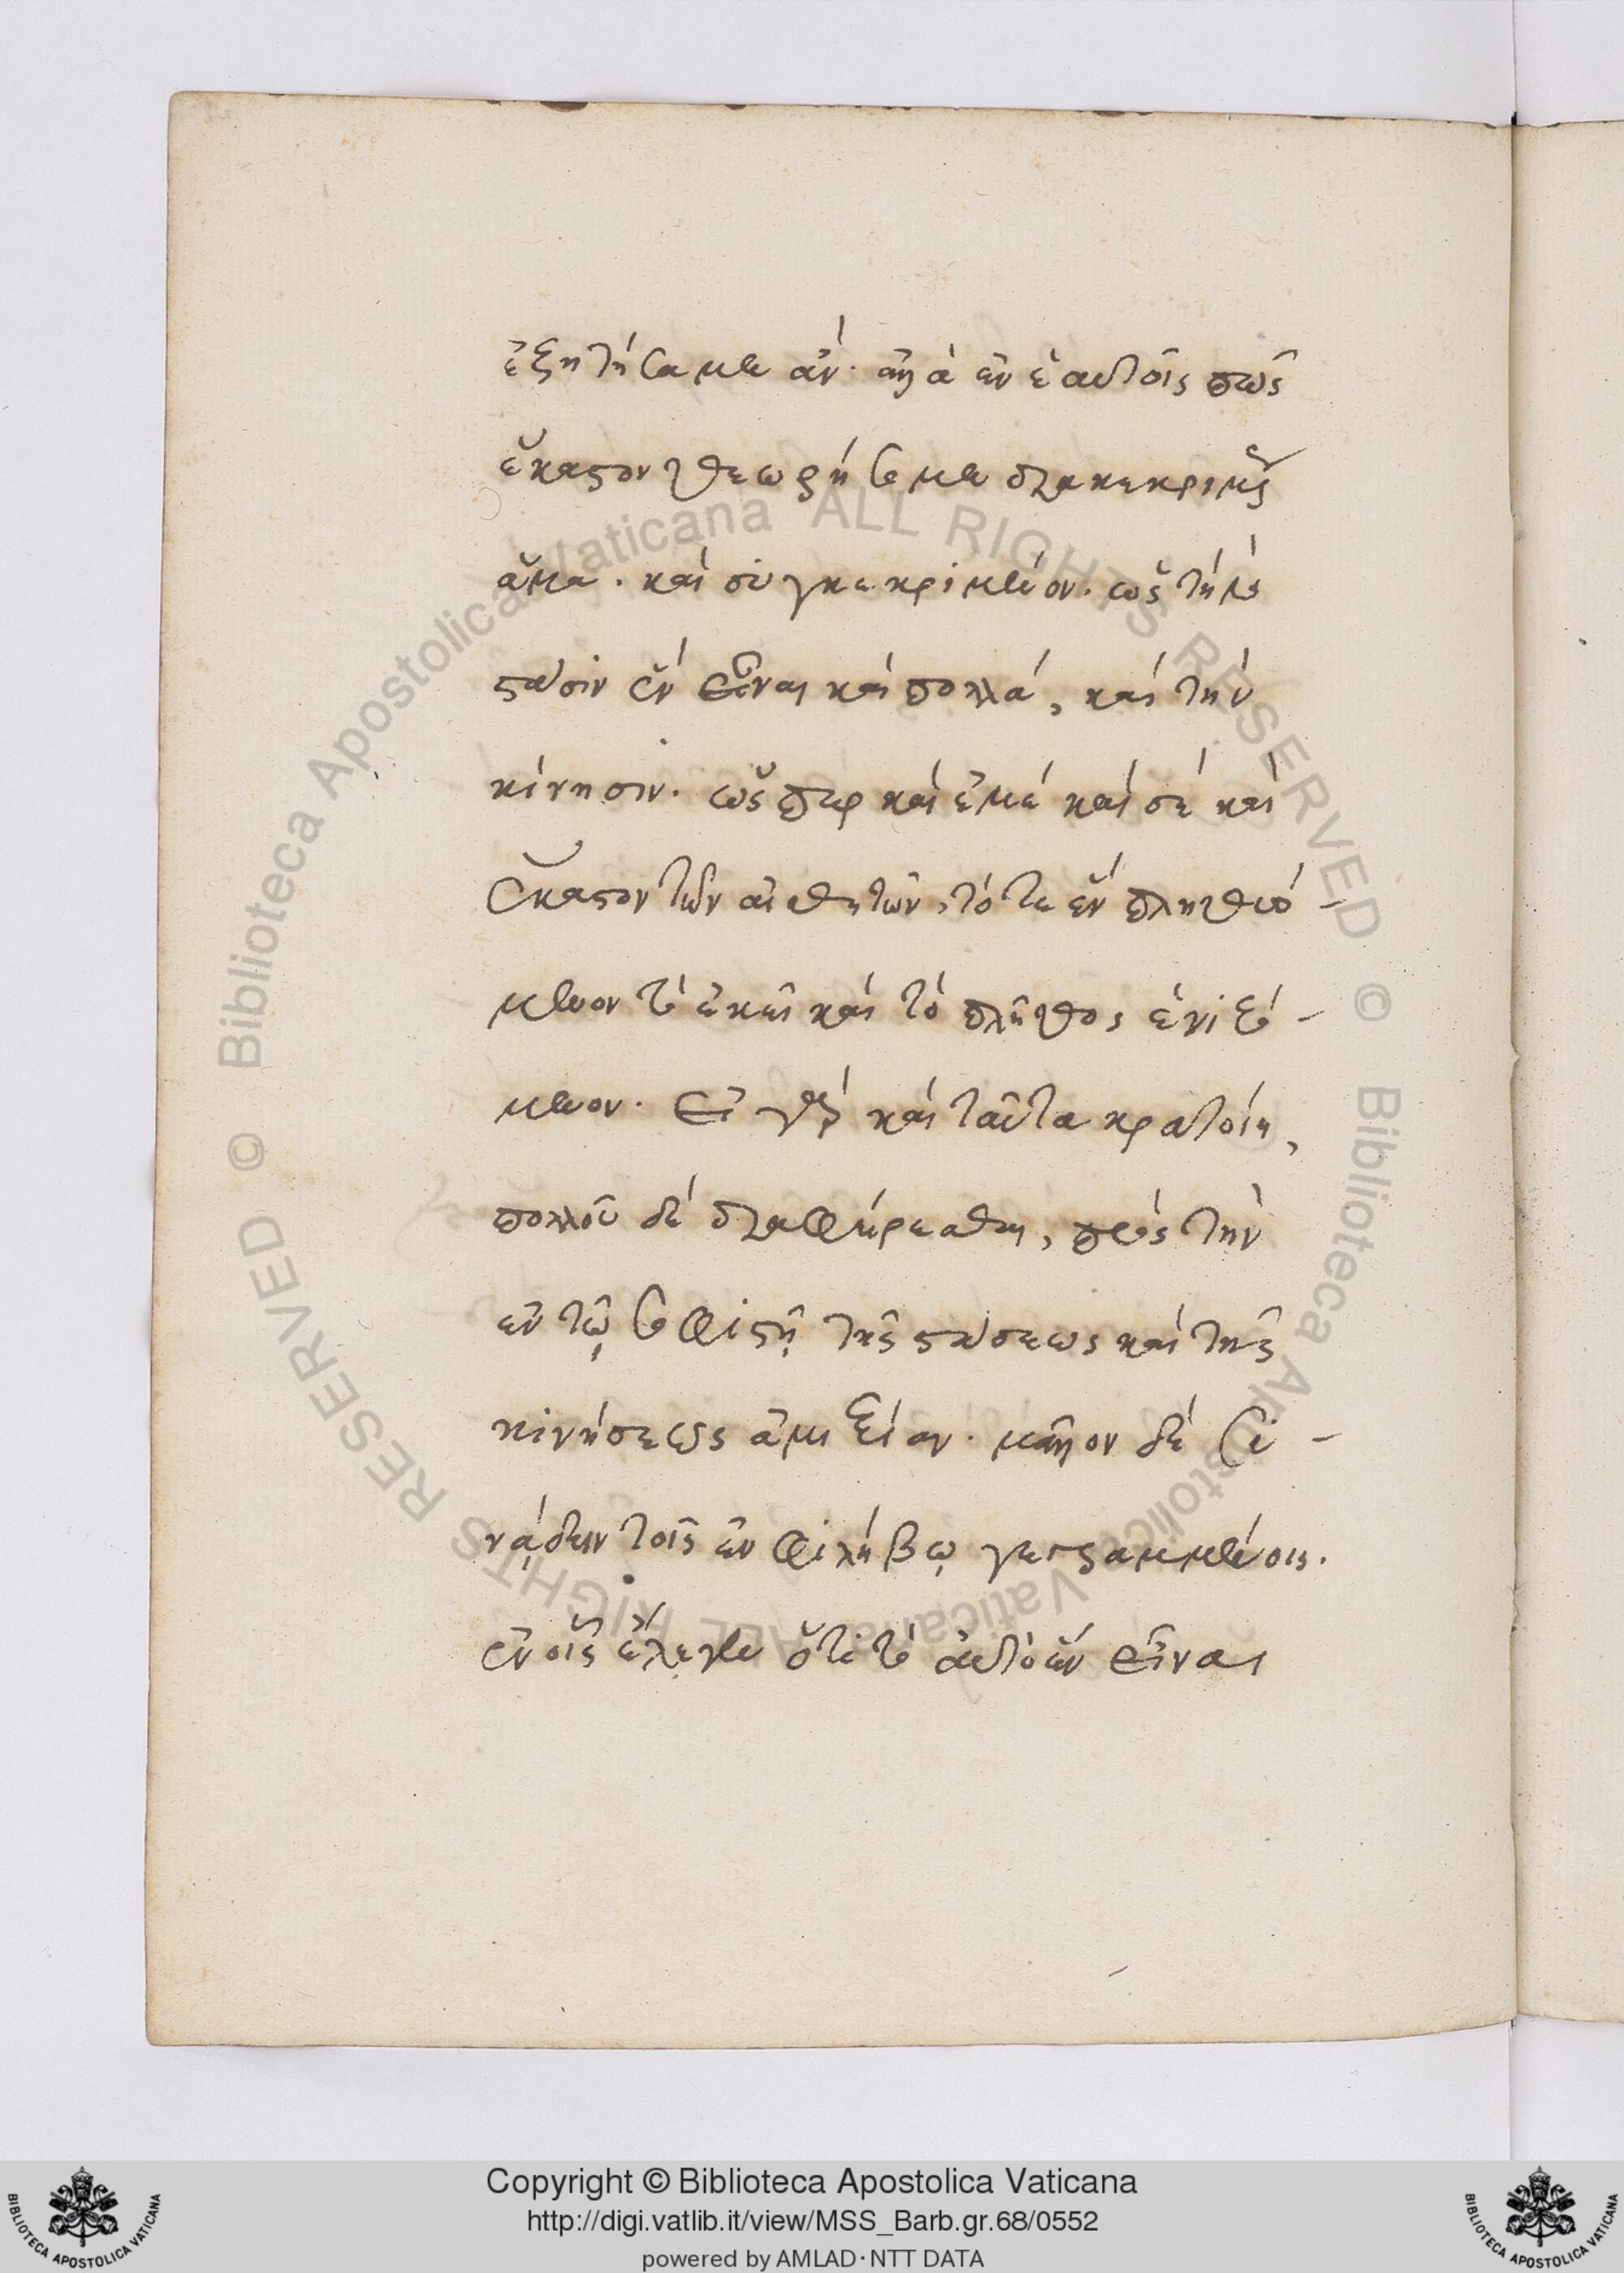 ἐζητήσαμεν ἄν· ἀλλὰ ἐν ἑαυτοῖς πῶς
ἕκαστον θεωρήσομεν διακεκριμένον
ἅμα· καὶ συγκεκριμένον· ὡς τὴν
στάσιν ἓν εἶναι καὶ πολλά, καὶ τὴν
κίνησιν· ὥσπερ καὶ ἐμὲ καὶ σὲ καὶ
ἕκαστον τῶν αἰσθητῶν, τό τε ἓν πληθυό-
μενον τὸ ἐκεῖ καὶ τὸ πλῆθος ἑνιζό-
μενον· Εἰ γὰρ καὶ ταῦτα κρατοίη,
πολλοῦ δὲ διαφέρεσθαι, πρὸς τὴν
ἐν τῷ σοφιστῇ τῆς στάσεως καὶ τῆς
κινήσεως ἀμιξίαν· μᾶλλον δὲ συ-
νᾴδειν τοῖς ἐν φιλήβῳ γεγραμμένοις·
ἐν οἷς ἔλεγεν ὅτι τὸ αὐτὸ ἓν εἶναι
Copyright © Biblioteca Apostolica Vaticana
http://digi.vatlib.it/view/MSS_Barb.gr.68/0552
powered by AMLAD·NTT DATA
© Biblioteca Apostolica Vaticana ALL RIGHTS RESERVED
© Biblioteca Apostolica Vaticana ALL RIGHTS RESERVED
BIBLIOTECA APOSTOLICA VATICANA
BIBLIOTECA APOSTOLICA VATICANA